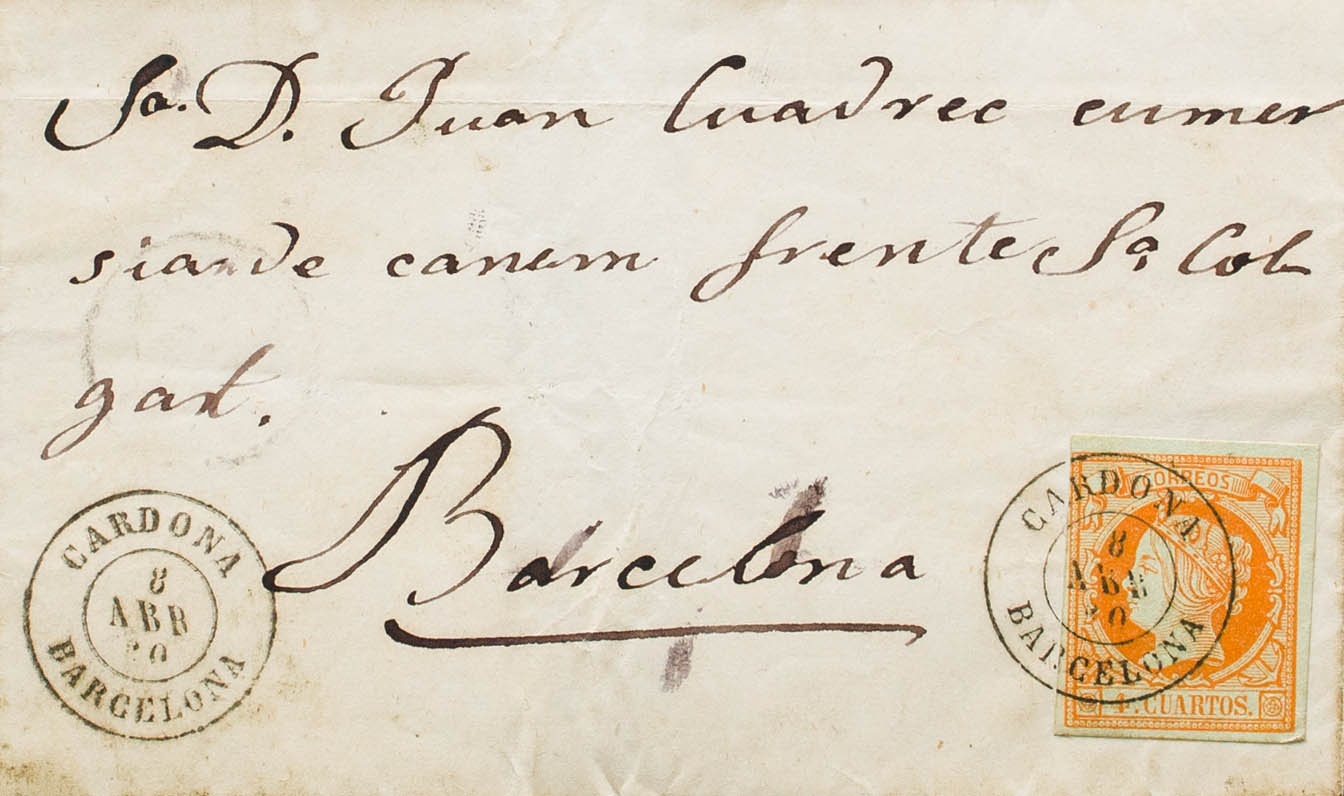 Sa. D. Juan Cuadrec cumer
siande canem frente Sa. Col
gat.
Barcelona
CARDONA
8
ABR
60
BARCELONA
CORREOS
CARDONA
8
ABR
60
BARCELONA
4. CUARTOS.